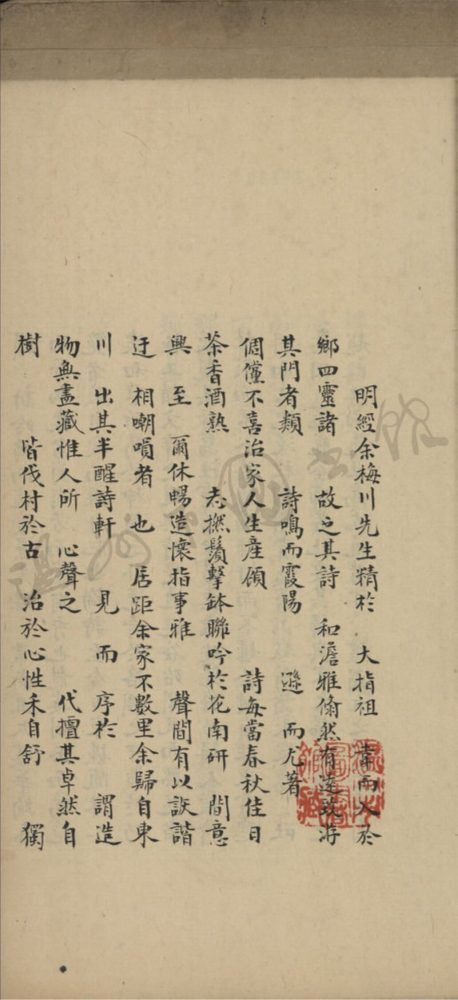 明經余梅川先生精於 大指祖 韋而入於
鄉四靈諸 故之其詩 和澹雅翛然有遠致游
其門者類 詩鳴而霞陽 遜 而尤著
倜儻不喜治家人生産顧 詩每當春秋佳日
茶香酒熟 志撚鬚擊鉢聯吟於花南研 間意
興至 爾休暢造懷指事雅 聲間有以詼諧
迂 相嘲嗊者 也 居距余家不數里余歸自東
川 出其半醒詩軒 見 而 序於 謂造
物無盡藏惟人所 心聲之 代擅其卓然自
樹 皆伐村於古 治於心性禾自舒 獨
溫州市圖書館